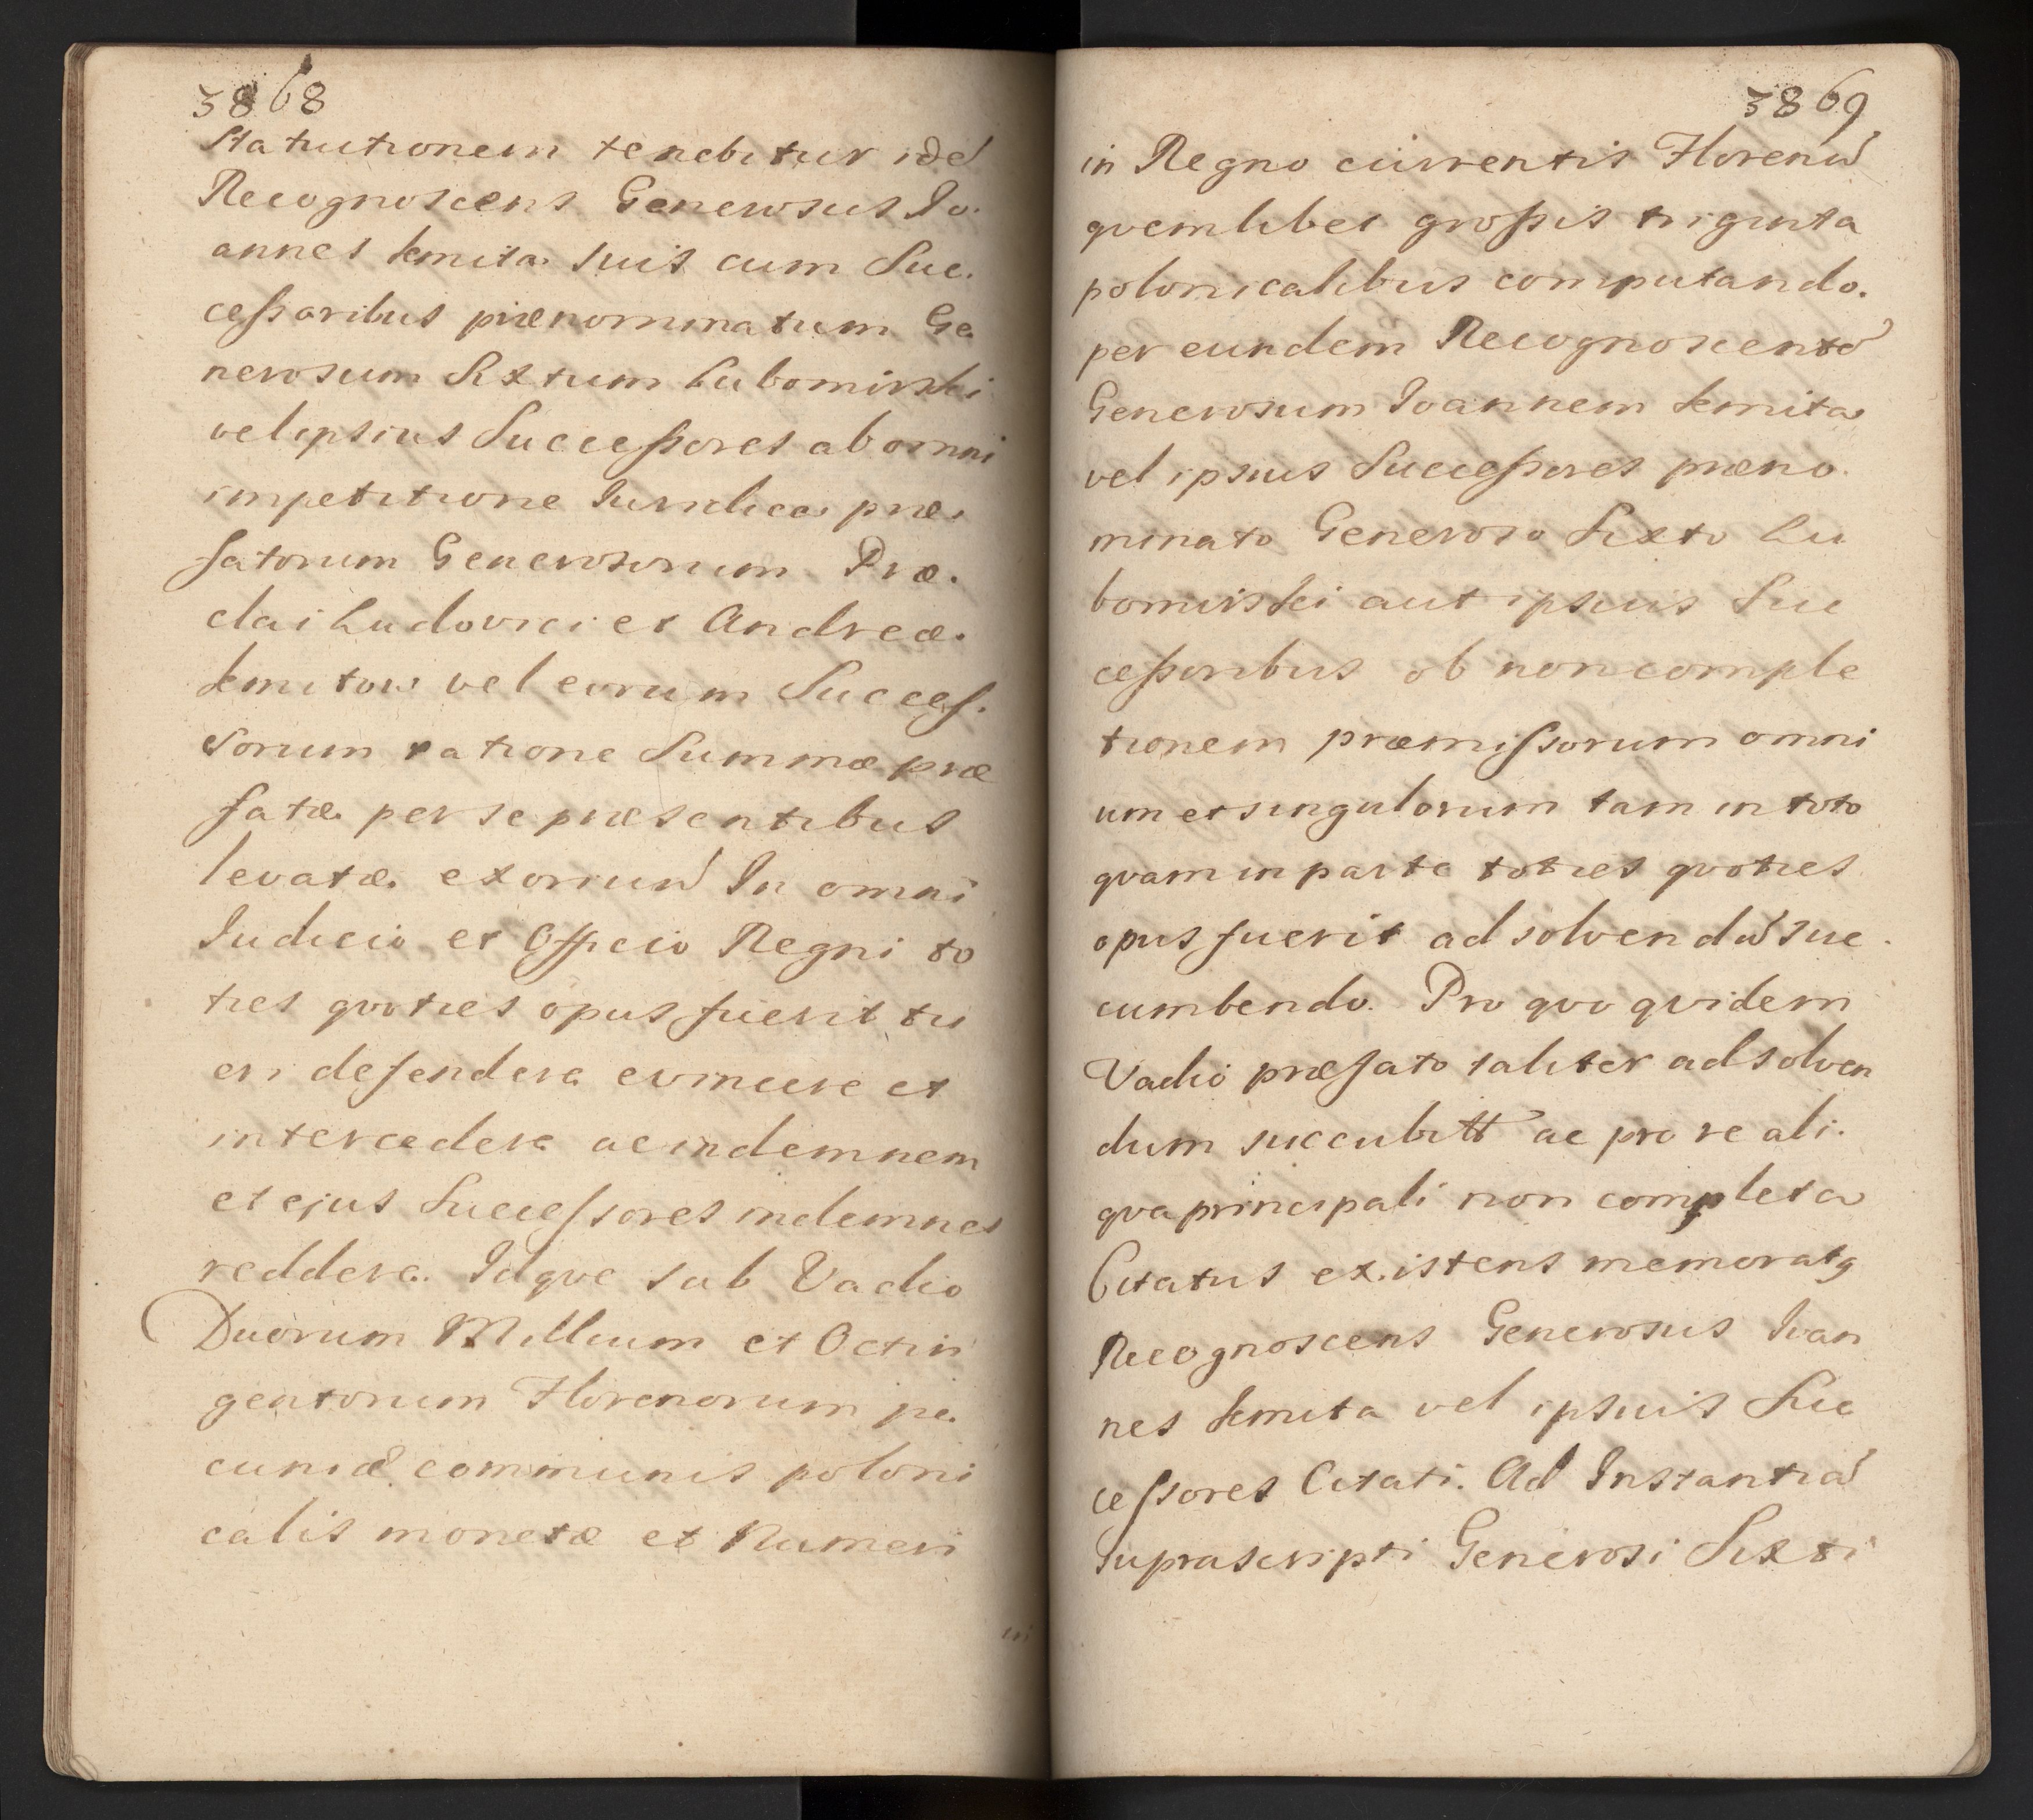 3868
Statutionem tenebitur idẽ
Recognoscens Generosus Jo.
annes Kmita suis cum Suc.
ceſsoribus prænominatum Ge
nerosum Sixtum Lubomirski
vel ipsius Succeſsores ab omni
impetitione Juridica præ.
fatorum Generosorum Præ.
clai Ludovici et Andreæ.
Kmitow vel eorum Succeſ.
sorum ratione Summæ præ
fatæ per se præsentibus
levatæ exoriun̄ In omni
Judicio et Officio Regni to
ties qvoties opus fuerit tu
eri defendere evincere et
intercedere ac indemnem
et ejus Succeſsores indemnes
reddere. Idqve sub Vadio
Duorum Millium et Octin
gentorum Florenorum pe.
cuniæ communis poloni
calis monetæ et Numeri
in
3869
in Regno currentis Florenũ
qvemlibet groſsis triginta
polonicalibus computando.
per eundem Recognoscentẽ
Generosum Joannem Kmita
vel ipsius Succeſsores præno.
minato Generoso Sixto Lu
bomirski aut ipsius Suc
ceſsoribus ob non comple
tionem præmiſsorum omni
um et singulorum tam in toto
qvam in parte toties qvoties
opus fuerit ad solvendũ suc.
cumbendo. Pro qvo qvidem
Vadio præfato taliter ad solven
dum succubitt̃ ac pro re ali.
qva principali non completa
Citatus existens memoratq
Recognoscens Generosus Joan
nes Kmita vel ipsuis Suc
ceſsores Citati. Ad Instantiã
suprascripti Generosi Sixti